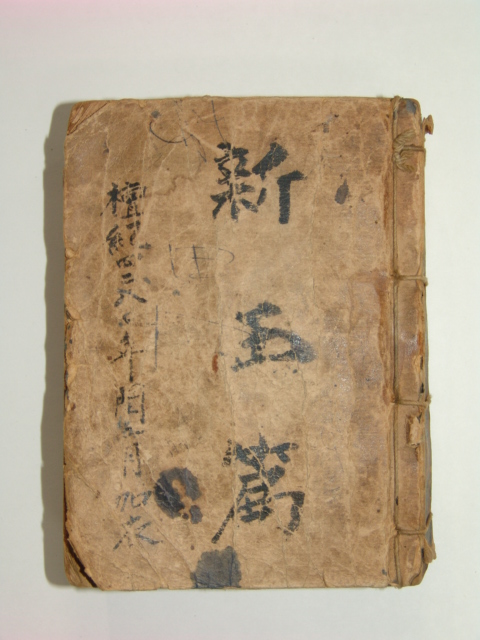 新玉篇
檀紀四二八一年閏七月加衣